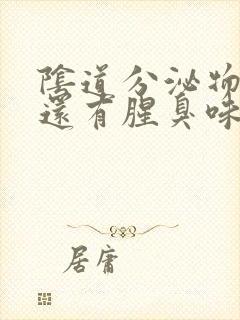 陰道分泌物
還有腥臭味
居庸